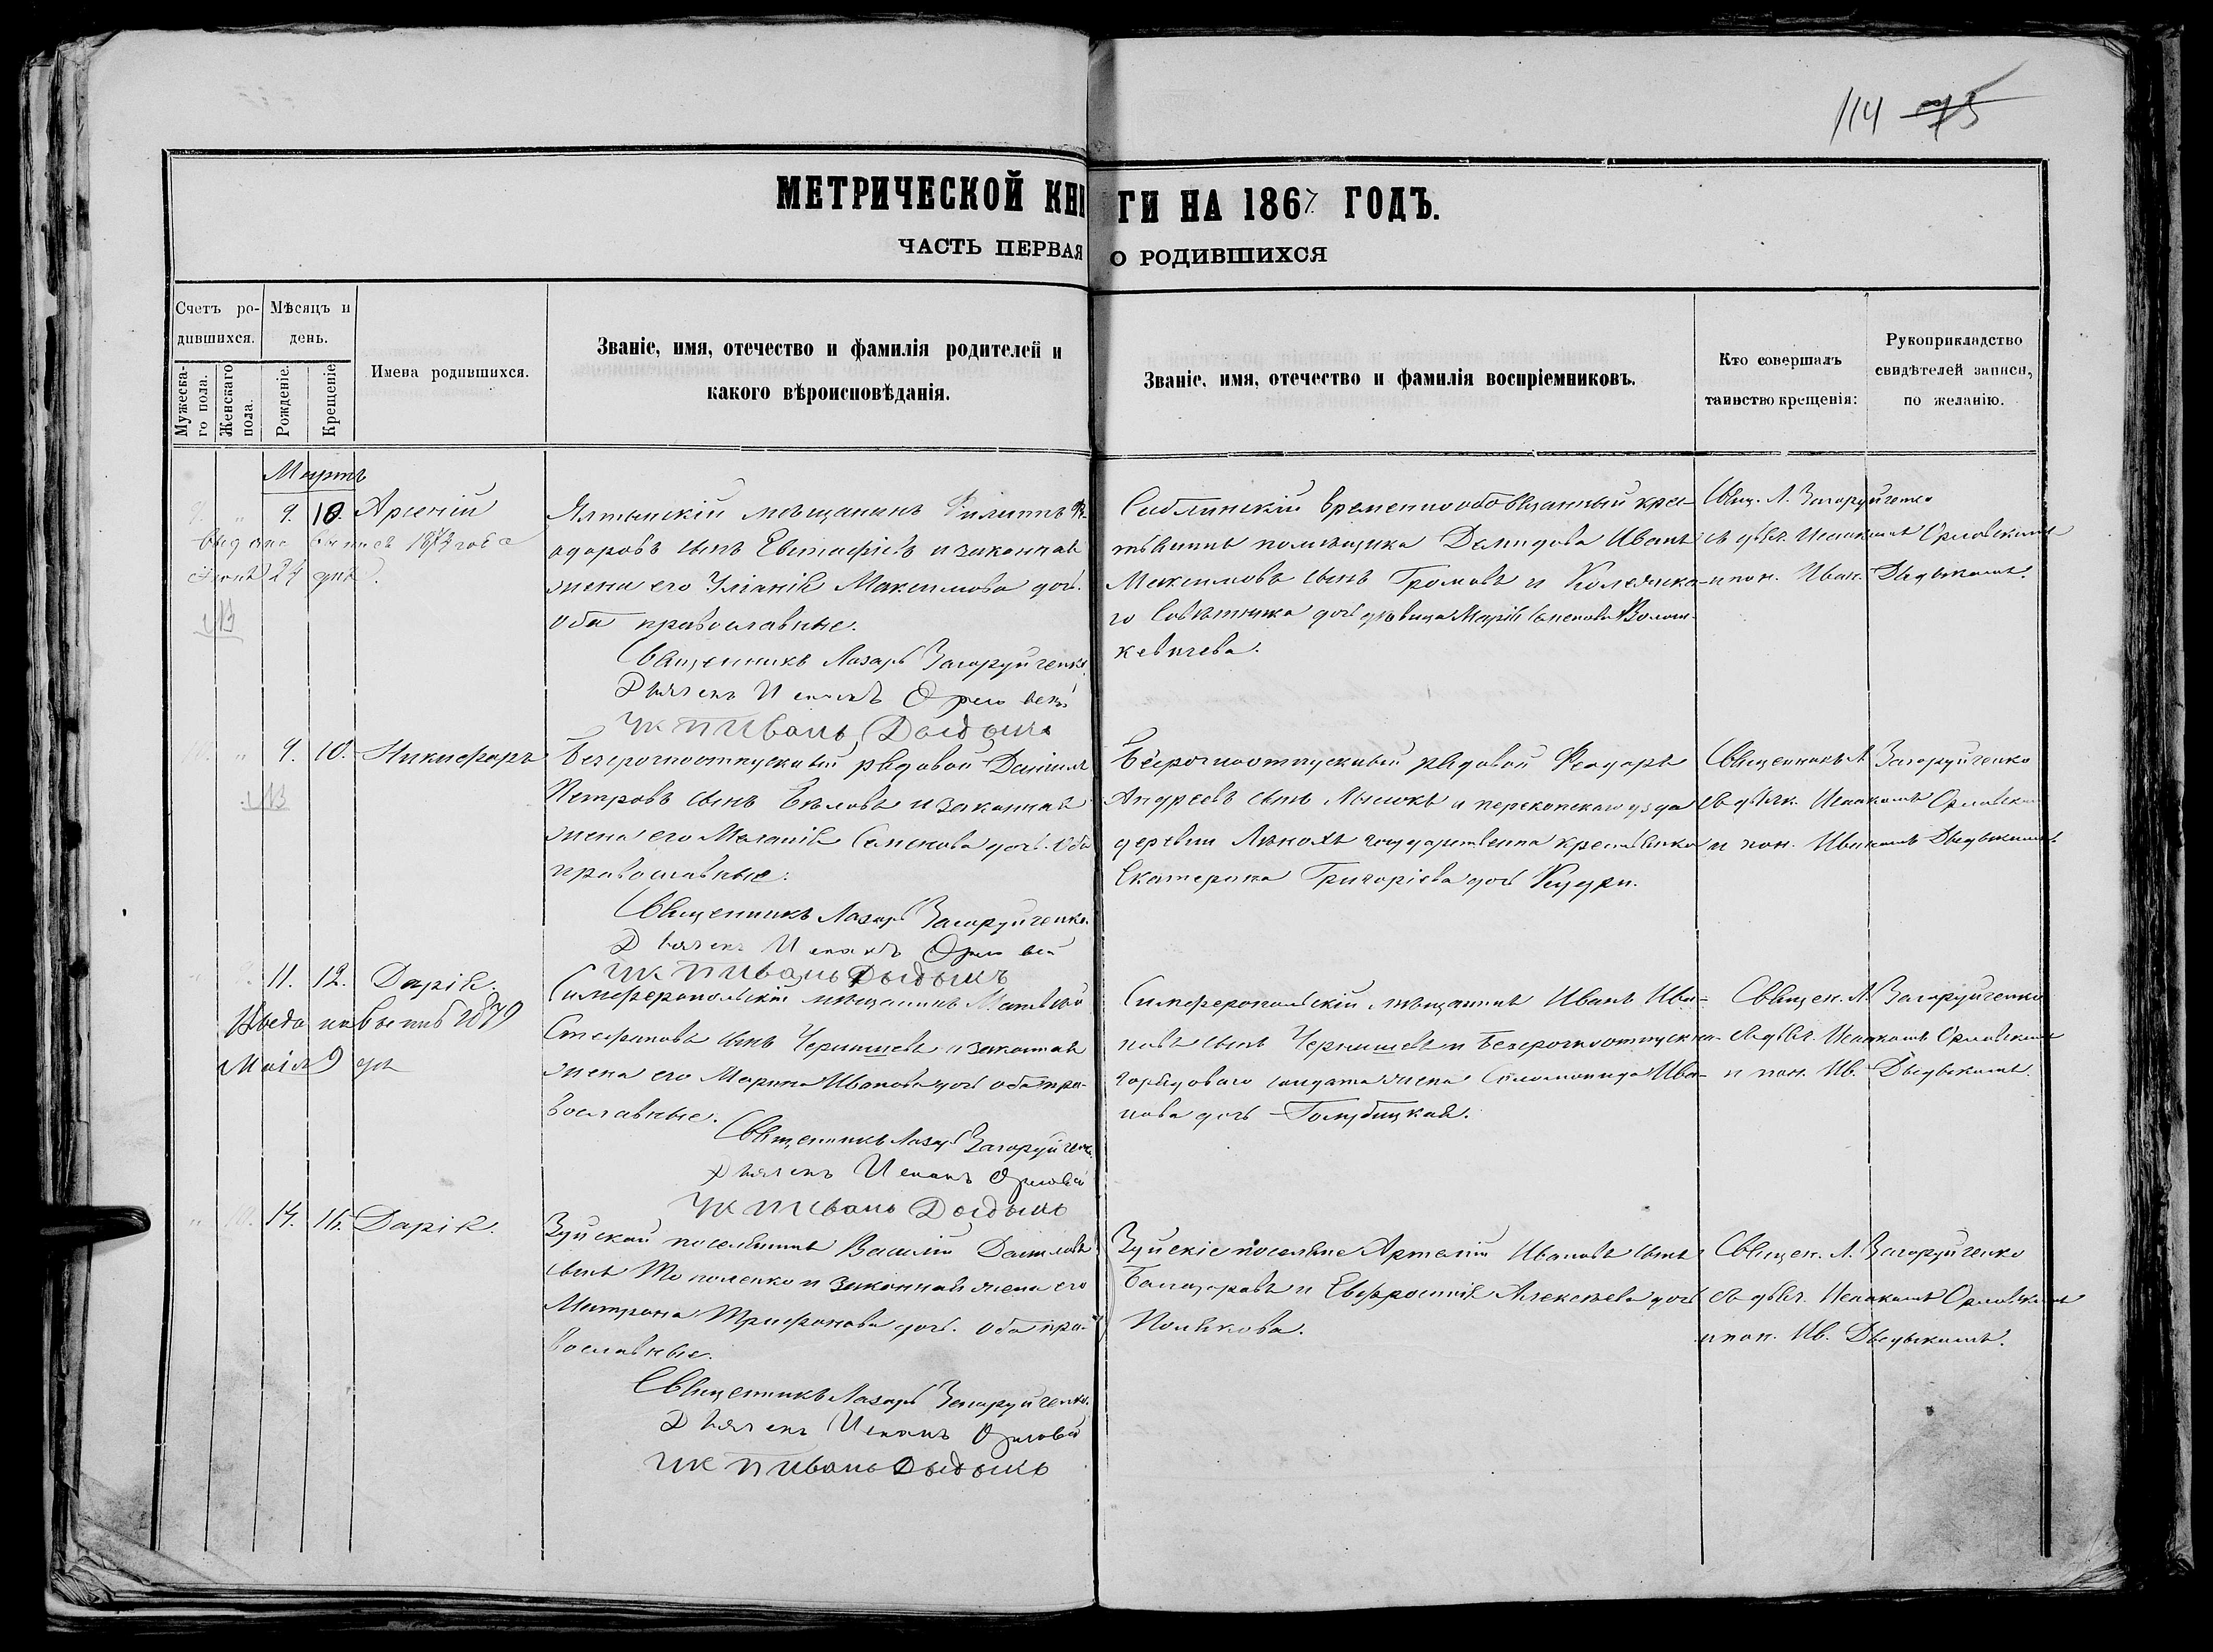 114 75
МЕТРИЧЕСКОЙ КНИГИ НА 1867 ГОДЪ.
ЧАСТЬ ПЕРВАЯ О РОДИВШИХСЯ
Счетъ ро-
дившихся.
Мужеска-
го пола.
Женскаго
пола.
Мѣсяцъ и
день.
Рожденіе.
Крещеніе.
Имена родившихся.
Званіе, имя, отечество и фамилія родителей и
какого вѣроисповѣданія.
Званіе, имя, отечество и фамилія воспріемниковъ.
Кто совершалъ
таинство крещенія:
Рукоприкладство
свидѣтелей записи,
по желанію.
Мартъ
9. " 9. 10. Арсеній
24 дня.
Ялтинскій мѣщанинъ Филиппъ Ѳ-
одоровъ сынъ Евстафіевъ и законная
жена его Уліанія Максимова дочь.
Оба православные.
Священникъ Лазарь Загоруйченко.
Дьячекъ Исаакъ Орловскій
Иванъ Дыдыкъ
Саблинскій временнообовязанный крес-
тьянинъ помѣщика Демидова Иванъ
Максимовъ сынъ Громовъ и Коллежска-
го Совѣтника дочь дѣвица Марія Семенова
кевичева.
Свящ. Л. Загоруйченко
съ дьяч. Исаакомъ Орловскимъ
и пон. Иван. Дыдыкомъ.
10. " 9. 10. Никифоръ
Безсрочноотпускной рядовой Даніилъ
Петровъ сынъ Бѣловъ и законная
жена его Меланія Семенова дочь. Оба
православные.
Священникъ Лазарь Загоруйченко.
Дьячекъ Исаакъ Орловскій
Иванъ Дыдыкъ
Безсрочноотпускной рядовой Ѳеодоръ
Андреевъ сынъ и перекопскаго уѣзда
деревни государственна крестьянка
Екатерина Григоріева дочь Кудри.
Священникъ Л. Загоруйченко
съ дьяч. Исаакомъ Орловским
и пон. Иваномъ Дыдыкомъ.
" 11. 12. Дарія.
1879
Маія 9 дня
Симферопольскій мѣщанинъ Матвѣй
Стефановъ сынъ Чернышевъ и законная
жена его Марина Иванова дочь оба пра-
вославные.
Священникъ Лазарь Загоруйченко.
Дьячекъ Исаакъ Орловскій
Иванъ Дыдыкъ
Симферопольскій мѣщанинъ Иванъ Ива-
новъ сынъ Чернышевъ и безсрочноотпускна-
го рядоваго солдата жена Соломонида Ива-
нова дочь Голубицкая.
Священ. Л. Загоруйченко
съ дьяч. Исаакомъ Орловскимъ
и пон. Ив. Дыдыкомъ.
" 10. 14. 16. Дарія.
Зуйской поселянинъ Василій Даниловъ
сынъ Тополенко и законная жена его
Матрона Трифонова дочь. Оба пра-
вославные.
Священникъ Лазарь Загоруйченко.
Дьячекъ Исаакъ Орловскій
Иванъ Дыдыкъ
Зуйскіе поселяне Артемій Ивановъ сынъ
и Евфросинія Алексѣева дочь
Полякова.
Священ. Л. Загоруйченко
съ дьяч. Исаакомъ Орловскимъ
и пон. Ив. Дыдыкомъ.